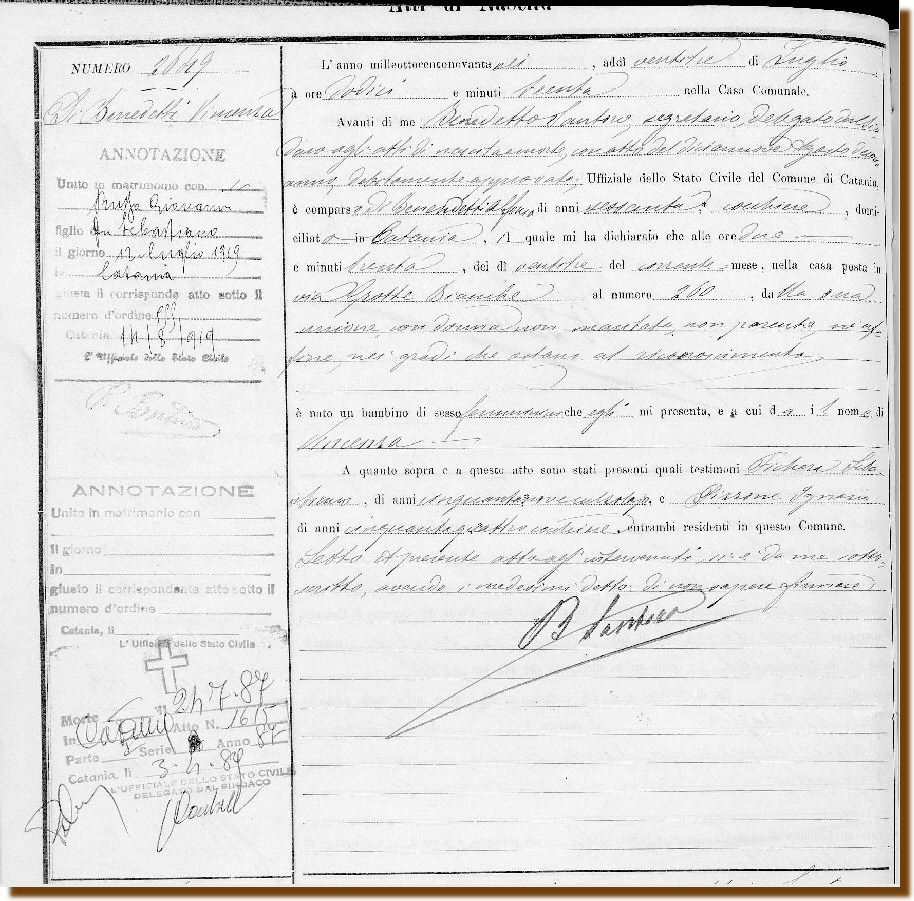 Atti di Nascita
NUMERO 2649
Di Benedetti Vincenza
ANNOTAZIONE
Unito in matrimonio con
Giovanni
figlio di fu Sebastiano
il giorno 12 Luglio 1919
in Catania
giusta il corrisponde atto sotto il
numero d'ordine
Catania 14/8/1919
L'Ufficiale dello Stato Civile
ANNOTAZIONE
Unito in matrimonio con
Il giorno
in
giusto il corrispondente atto sotto il
numero d'ordine
Catania, li
L'Ufficiale dello Stato Civile
Morto il 24-7-87
In Catania Atto N. 1615
Parte Serie Anno 87
Catania, li
L'UFFICIALE DELLO STATO CIVILE
DELEGATO DAL SINDACO
L'anno milleottocentonovantasei, addì ventitre di Luglio
a ore dodici e minuti trenta, nella Casa Comunale.
Avanti di me Benedetto Santoro, segretario, delegato dal Sin-
daco agli atti di nascita e morte, con atto del diciannove Agosto
anno, debitamente approvato, Uffiziale dello Stato Civile del Comune di Catania,
è comparso Di Benedetti Alfio di anni sessanta, domi-
ciliato in Catania, il quale mi ha dichiarato che alle ore due
e minuti trenta, del dì ventitre del corrente mese, nella casa posta in
via Grotte Bianche al numero 260, dalla sua
unione con donna non maritata, non parente, nè af-
fine, nei gradi che ostano al riconoscimento
è nato un bambino di sesso femminino che egli mi presenta, e a cui dà il nome di
Vincenza
A quanto sopra e a questo atto sono stati presenti quali testimoni Fichera Seba-
stiano, di anni cinquantanove calzolaio e Pizzone Ignazio
di anni cinquantaquattro, entrambi residenti in questo Comune.
Letto il presente atto agl' intervenuti, si è da me sotto-
scritto, avendo i medesimi detto di non sapere firmare
B Santoro